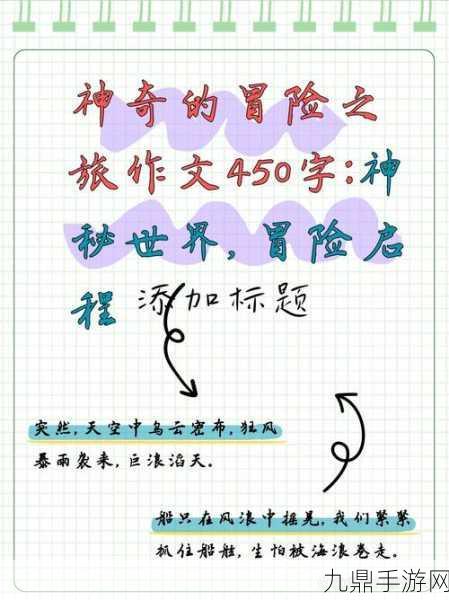 神奇的冒险之
旅作文450字:神
秘世界,冒险启
程
添加标题
突然,天空中乌云密布,狂风
暴雨袭来,巨浪滔天。
船只在风浪中摇晃,我们紧紧
抓住船舷,生怕被海浪卷走。
九鼎手游网